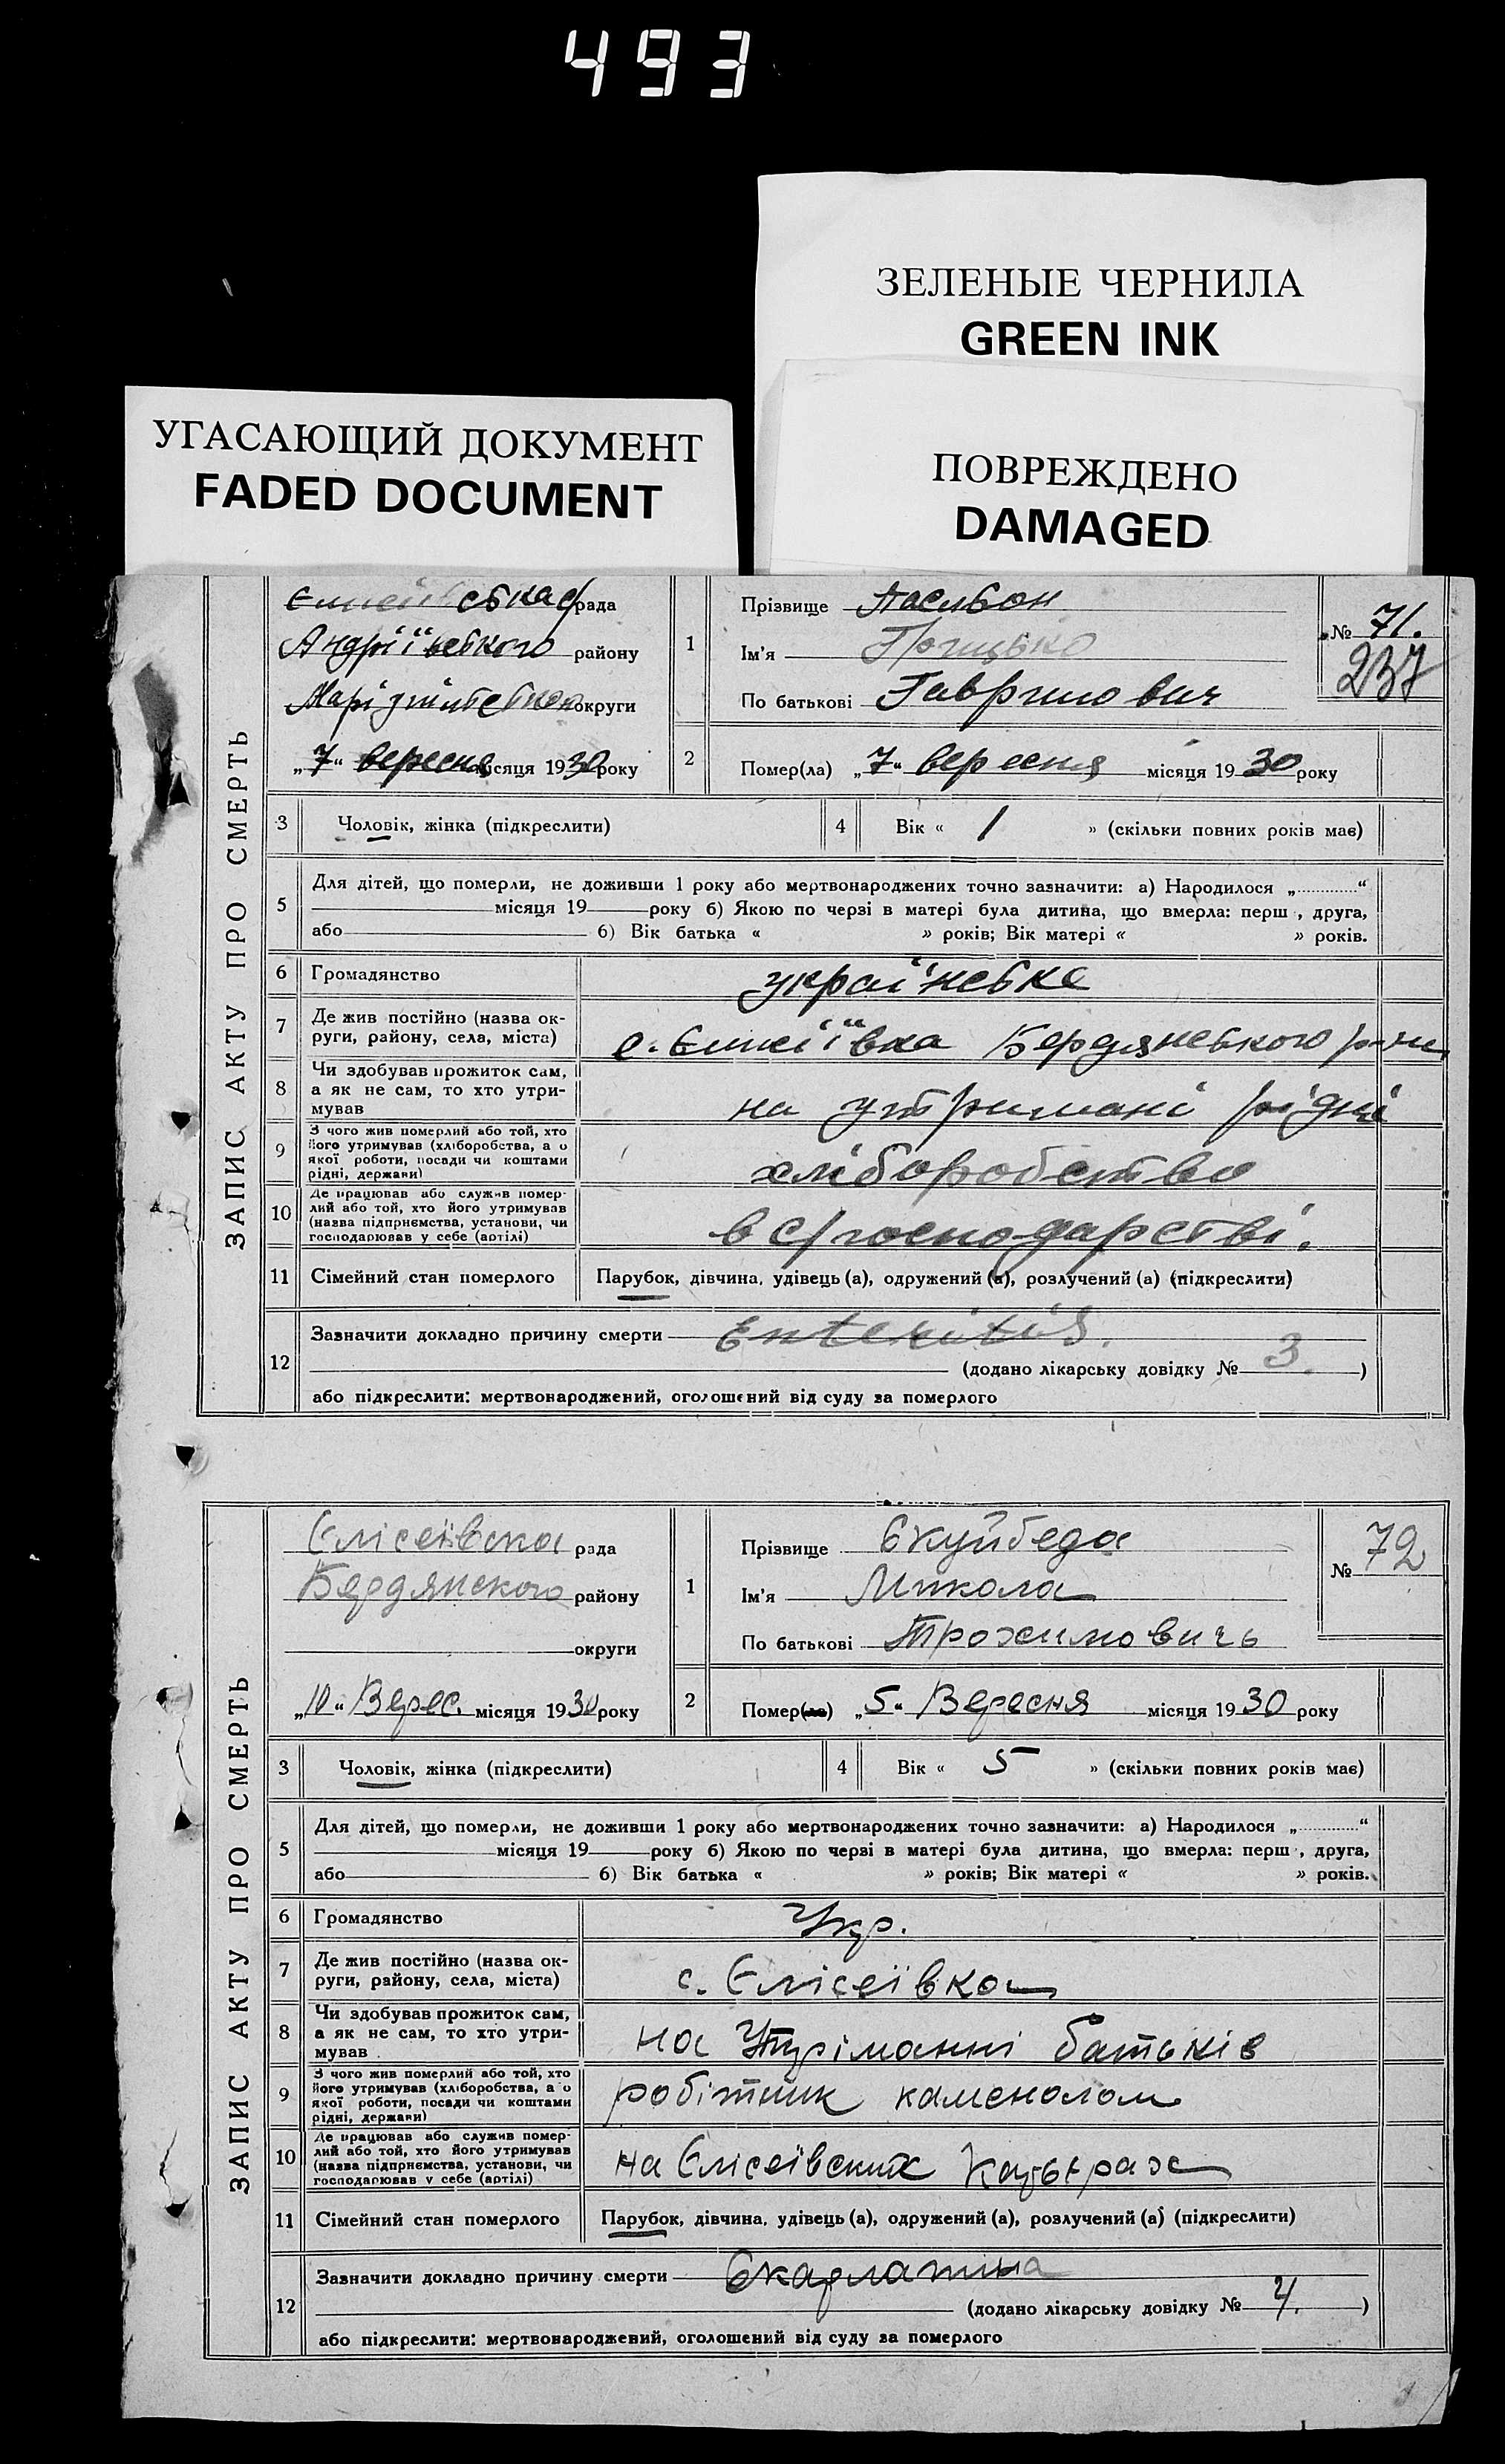 493
ЗЕЛЕНЫЕ ЧЕРНИЛА
GREEN INK
УГАСАЮЩИЙ ДОКУМЕНТ
FADED DOCUMENT
ПОВРЕЖДЕНО
DAMAGED
ЗАПИС АКТУ ПРО СМЕРТЬ
с/рада
Андріївського району
округи
„7“ вересня місяця 1930 року
1
Прізвище
Ім'я Грицько
По батькові Гаврилович
№ 71.
237
2
Помер(ла) „7“ вересня місяця 1930 року
3 Чоловік, жінка (підкреслити)
4 Вік « 1 » (скільки повних років має)
5 Для дітей, що померли, не доживши 1 року або мертвонароджених точно зазначити: а) Народилося „ “
місяця 19 року б) Якою по черзі в матері була дитина, що вмерла: перш , друга,
або б) Вік батька « » років; Вік матері « » років.
6 Громадянство українське
7 Де жив постійно (назва ок-
руги, району, села, міста) с. Бердянського
8 Чи здобував прожиток сам,
а як не сам, то хто утри-
мував на утримані рідні
9 З чого жив померлий або той, хто
його утримував (хліборобства, а о
якої роботи, посади чи коштами
рідні, держави) хліборобство
10 Де працював або служив помер-
лий або той, хто його утримував
(назва підприємства, установи, чи
господарював у себе (артілі) в с/господарстві.
11 Сімейний стан померлого Парубок, дівчина, удівець (а), одружений (а), розлучений (а) (підкреслити)
12 Зазначити докладно причину смерти Enteritis.
(додано лікарську довідку № 3. )
або підкреслити: мертвонароджений, оголошений від суду за померлого
ЗАПИС АКТУ ПРО СМЕРТЬ
Єлісеївска рада
Бердянского району
округи
„10“ Верес. місяця 1930 року
1
Прізвище Скуйбеда
Ім'я Микола
По батькові Трохимовичь
№ 72
2
Помер(ла) „5“ Вересня місяця 1930 року
3 Чоловік, жінка (підкреслити)
4 Вік « 5 » (скільки повних років має)
5 Для дітей, що померли, не доживши 1 року або мертвонароджених точно зазначити: а) Народилося „ “
місяця 19 року б) Якою по черзі в матері була дитина, що вмерла: перш , друга,
або б) Вік батька « » років; Вік матері « » років.
6 Громадянство Укр.
7 Де жив постійно (назва ок-
руги, району, села, міста) с. Єлісеївка
8 Чи здобував прожиток сам,
а як не сам, то хто утри-
мував на Утріманні батьків
9 З чого жив померлий або той, хто
його утримував (хліборобства, а о
якої роботи, посади чи коштами
рідні, держави) робітник каменолом
10 Де працював або служив помер-
лий або той, хто його утримував
(назва підприємства, установи, чи
господарював у себе (артілі) на Єлісеївських
11 Сімейний стан померлого Парубок, дівчина, удівець (а), одружений (а), розлучений (а) (підкреслити)
12 Зазначити докладно причину смерти Скарлатина
(додано лікарську довідку № 4. )
або підкреслити: мертвонароджений, оголошений від суду за померлого